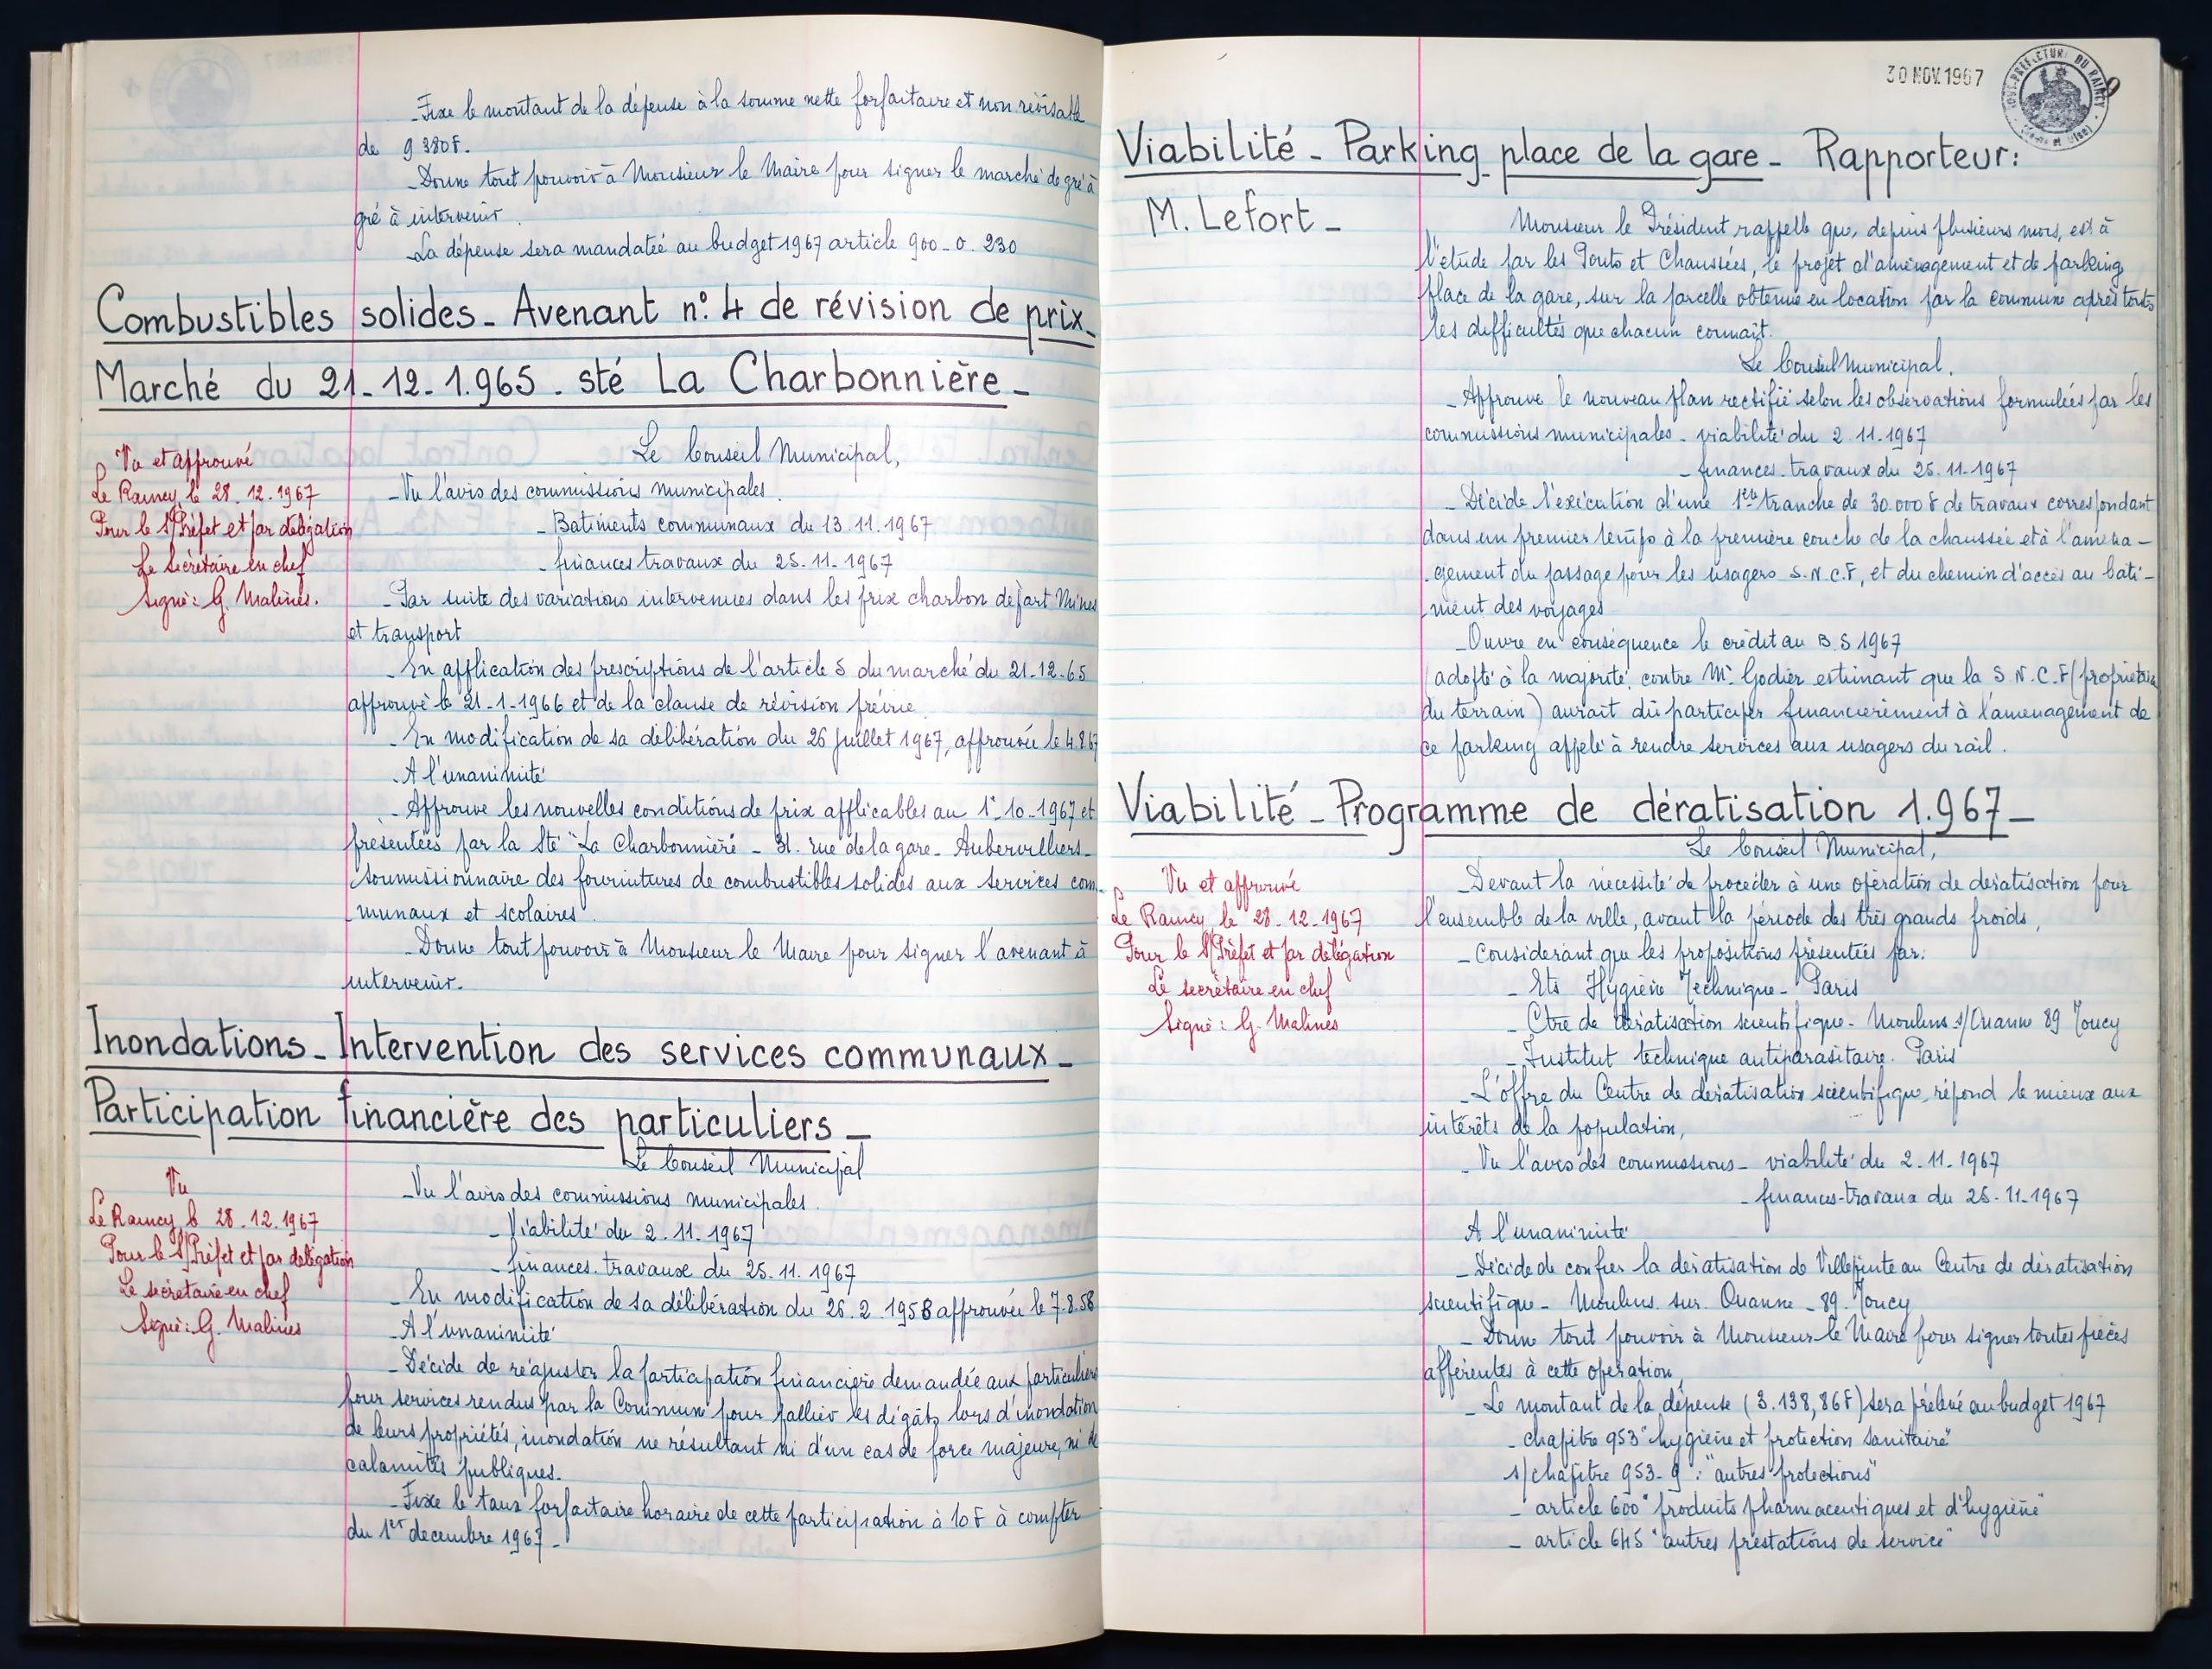 - Fixe le montant de la dépense à la somme nette forfaitaire et non révisable
de 9 380 F.
- Donne tout pouvoir à Monsieur le Maire pour signer le marché de gré à
gré à intervenir.
- La dépense sera mandatée au budget 1967 article 900-0. 230
Combustibles solides - Avenant n° 4 de révision de prix -
Marché du 21-12-1.965. sté La Charbonnière -
Le Conseil Municipal,
Vu et approuvé
Le Raincy, le 28.12.1967
Pour le S/Préfet et par délégation
Le Secrétaire en chef
Signé: G. Malines.
- Vu l'avis des commissions municipales.
- Batiments communaux du 13.11.1967
- finances travaux du 25.11.1967
- Par suite des variations intervenues dans les prix charbon départ Mines
et transport
- En application des prescriptions de l'article 5 du marché du 21-12-65
approuvé le 21-1-1966 et de la clause de révision prévue
- En modification de sa délibération du 26 juillet 1967, approuvée le 4.8.67
- A l'unanimité
- Approuve les nouvelles conditions de prix applicables au 1°-10-1967 et
présentées par la Sté "La Charbonnière - 31. rue de la gare - Aubervilliers -
soumissionnaire des fournitures de combustibles solides aux services com-
munaux et scolaires.
- Donne tout pouvoir à Monsieur le Maire pour signer l'avenant à
intervenir.
Inondations - Intervention des services communaux -
Participation financière des particuliers -
Le Conseil Municipal
Vu
Le Raincy, le 28.12.1967
Pour le S/Préfet et par délégation
Le secrétaire en chef
Signé: G. Malines
- Vu l'avis des commissions municipales.
- Viabilité du 2.11.1967
- finances-travaux du 25.11.1967
- En modification de sa délibération du 26.2.1958 approuvée le 7.8.58
- A l'unanimité
- Décide de réajuster la participation financière demandée aux particuliers
pour services rendus par la Commune pour pallier les dégâts lors d'inondation
de leurs propriétés, inondation ne résultant ni d'un cas de force majeure, ni de
calamités publiques.
- Fixe le taux forfaitaire horaire de cette participation à 10 F à compter
du 1er decembre 1967 -
30 NOV. 1967
SOUS-PRÉFECTURE DU RAINCY
(Seine et Oise)
Viabilité - Parking place de la gare - Rapporteur:
M. Lefort -
Monsieur le Président rappelle que, depuis plusieurs mois, est à
l'étude par les Ponts et Chaussées, le projet d'aménagement et de parking
place de la gare, sur la parcelle obtenue en location par la commune après toutes
les difficultés que chacun connait.
Le Conseil Municipal,
- Approuve le nouveau plan rectifié selon les observations formulées par les
commissions municipales - viabilité du 2.11.1967
- finances-travaux du 25.11.1967
- Décide l'exécution d'une 1ère tranche de 30.000 F de travaux correspondant
dans un premier temps à la première couche de la chaussée et à l'aména -
- gement du passage pour les usagers S.N.C.F, et du chemin d'accès au bati -
- ment des voyages
- Ouvre en conséquence le crédit au B.S 1967
(adopté à la majorité, contre Mr Godier estimant que la S.N.C.F (propriétaire
du terrain) aurait dû participer financièrement à l'aménagement de
ce parking appelé à rendre services aux usagers du rail.
Viabilité - Programme de dératisation 1.967 -
Le Conseil Municipal,
Vu et approuvé
Le Raincy, le 28-12-1967
Pour le S/Préfet et par délégation
Le secrétaire en chef
Signé: G. Malines
- Devant la nécessité de procéder à une opération de dératisation pour
l'ensemble de la ville, avant la période des très grands froids,
- Considérant que les propositions présentées par:
- Ets Hygiène Technique - Paris
- Ctre de dératisation scientifique - Moulins s/Ouanne 89 Toucy
- Institut technique antiparasitaire. Paris
- L'offre du Centre de dératisation scientifique, répond le mieux aux
intérêts de la population,
- Vu l'avis des commissions - viabilité du 2.11.1967
- finances-travaux du 25.11.1967
A l'unanimité
- Décide de confier la dératisation de Villepinte au Centre de dératisation
scientifique - Moulins sur Ouanne - 89. Toucy
- Donne tout pouvoir à Monsieur le Maire pour signer toutes pièces
afférentes à cette opération,
- Le montant de la dépense (3.138,86 F) sera prélevé au budget 1967
- chapitre 953 "hygiène et protection sanitaire"
s/chapitre 953-9: "autres protections"
- article 600 "produits pharmaceutiques et d'hygiène"
- article 645 "autres prestations de service"